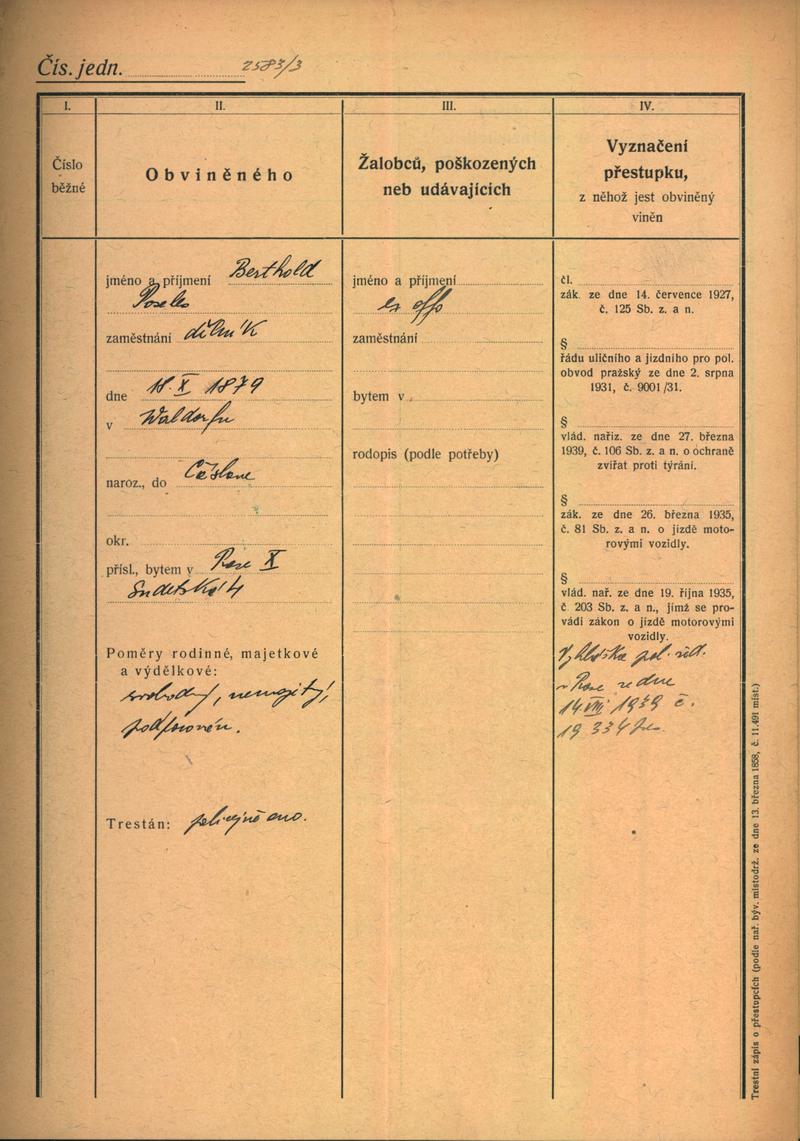 Čís. jedn. 2583/3
I.
II.
III.
IV.
Číslo
běžné
Obviněného
Žalobců, poškozených
neb udávajících
Vyznačení
přestupku,
z něhož jest obviněný
viněn
jméno a příjmení Berthold
zaměstnání dělník
dne 18. X 1879
v Waldorfu
naroz., do Čáslavi
okr.
přísl., bytem v Praze X
Sudetská 4
Poměry rodinné, majetkové
a výdělkové:
svobodný, nemajetný,
podporován.
Trestán: policejně ano.
jméno a příjmení
ex offo
zaměstnání
bytem v
rodopis (podle potřeby)
čl.
zák. ze dne 14. července 1927,
č. 125 Sb. z. a n.
§
řádu uličního a jízdního pro pol.
obvod pražský ze dne 2. srpna
1931, č. 9001/31.
§
vlád. nařiz. ze dne 27. března
1939, č. 106 Sb. z. a n. o ochraně
zvířat proti týrání.
§
zák. ze dne 26. března 1935,
č. 81 Sb. z. a n. o jízdě moto-
rovými vozidly.
§
vlád. nař. ze dne 19. října 1935,
č. 203 Sb. z. a n., jímž se pro-
vádí zákon o jízdě motorovými
vozidly.
Vyhláška pol. řed.
v Praze ze dne
14. VIII 1939 č.
19 334
Trestní zápis o přestupcích (podle nař. býv. místodrž. ze dne 13. března 1858, č. 11.491 míst.)